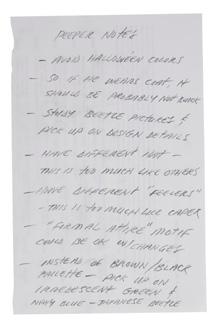 DEEPER NOTES
- AVOID HALLOWEEN COLORS
- SO IF HE WEARS COAT, IT
SHOULD BE PROBABLY NOT BLACK
- STUDY BEETLE PICTURES &
PICK UP ON DESIGN DETAILS
- HAVE DIFFERENT HAT -
THIS IS TOO MUCH LIKE OTHERS
- HAVE DIFFERENT "FEELERS"
- THIS IS TOO MUCH LIKE CAPER
- "FORMAL ATTIRE" MOTIF
COULD BE OK W/CHANGES
- INSTEAD OF BROWN/BLACK
PALLETTE - PICK UP ON
IRREDESCENT GREEN &
NAVY BLUE - JAPANESE BEETLE